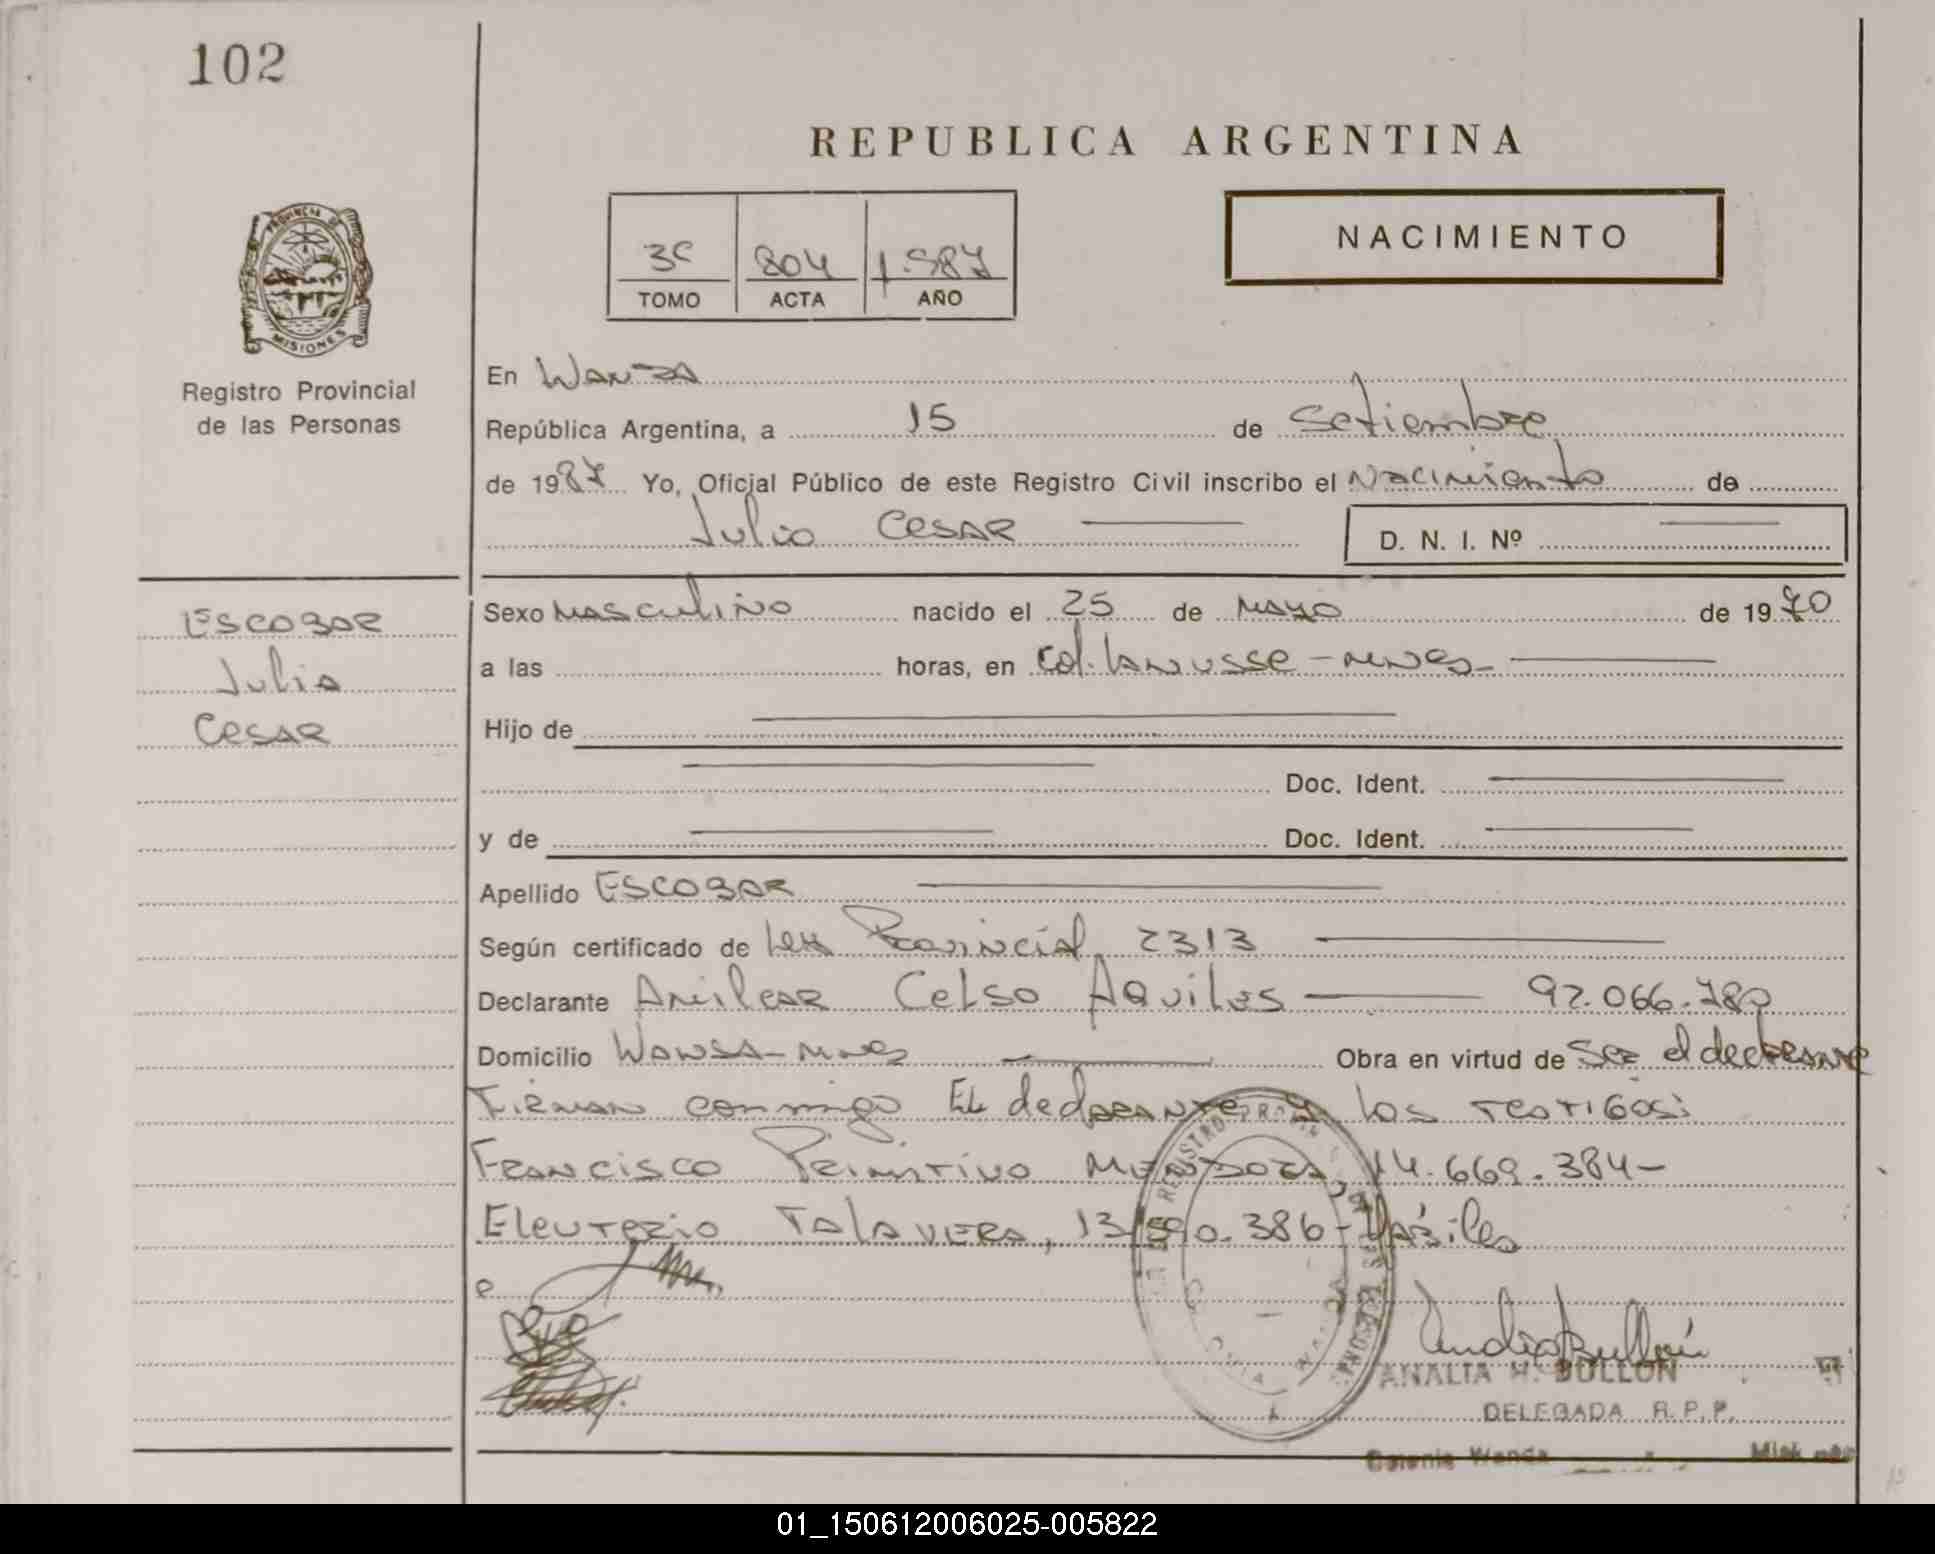 102
REPUBLICA ARGENTINA
NACIMIENTO
3º 804 1.987
TOMO ACTA AÑO
PROVINCIA DE MISIONES
Registro Provincial
de las Personas
En Wanda
República Argentina, a 15 de Setiembre
de 1987 Yo, Oficial Público de este Registro Civil inscribo el Nacimiento de
Julio Cesar
D. N. I. Nº
ESCOBAR
Julio
Cesar
Sexo Masculino nacido el 25 de Mayo de 1970
a las horas, en Col. Lanusse - Mnes-
Hijo de
Doc. Ident.
y de Doc. Ident.
Apellido ESCOBAR
Según certificado de Ley Provincial 2313
Declarante Amilcar Celso Aquiles 92.066.780
Domicilio Wanda - Mnes Obra en virtud de Ser el declarante
Firman conmigo El declarante y los testigos:
Francisco Primitivo Mendoza, 14.669.384-
Eleuterio Talavera, 13.590.386- Hábiles
ANALIA H. BULLON
DELEGADA R.P.P.
Colonia Wanda
01_150612006025-005822